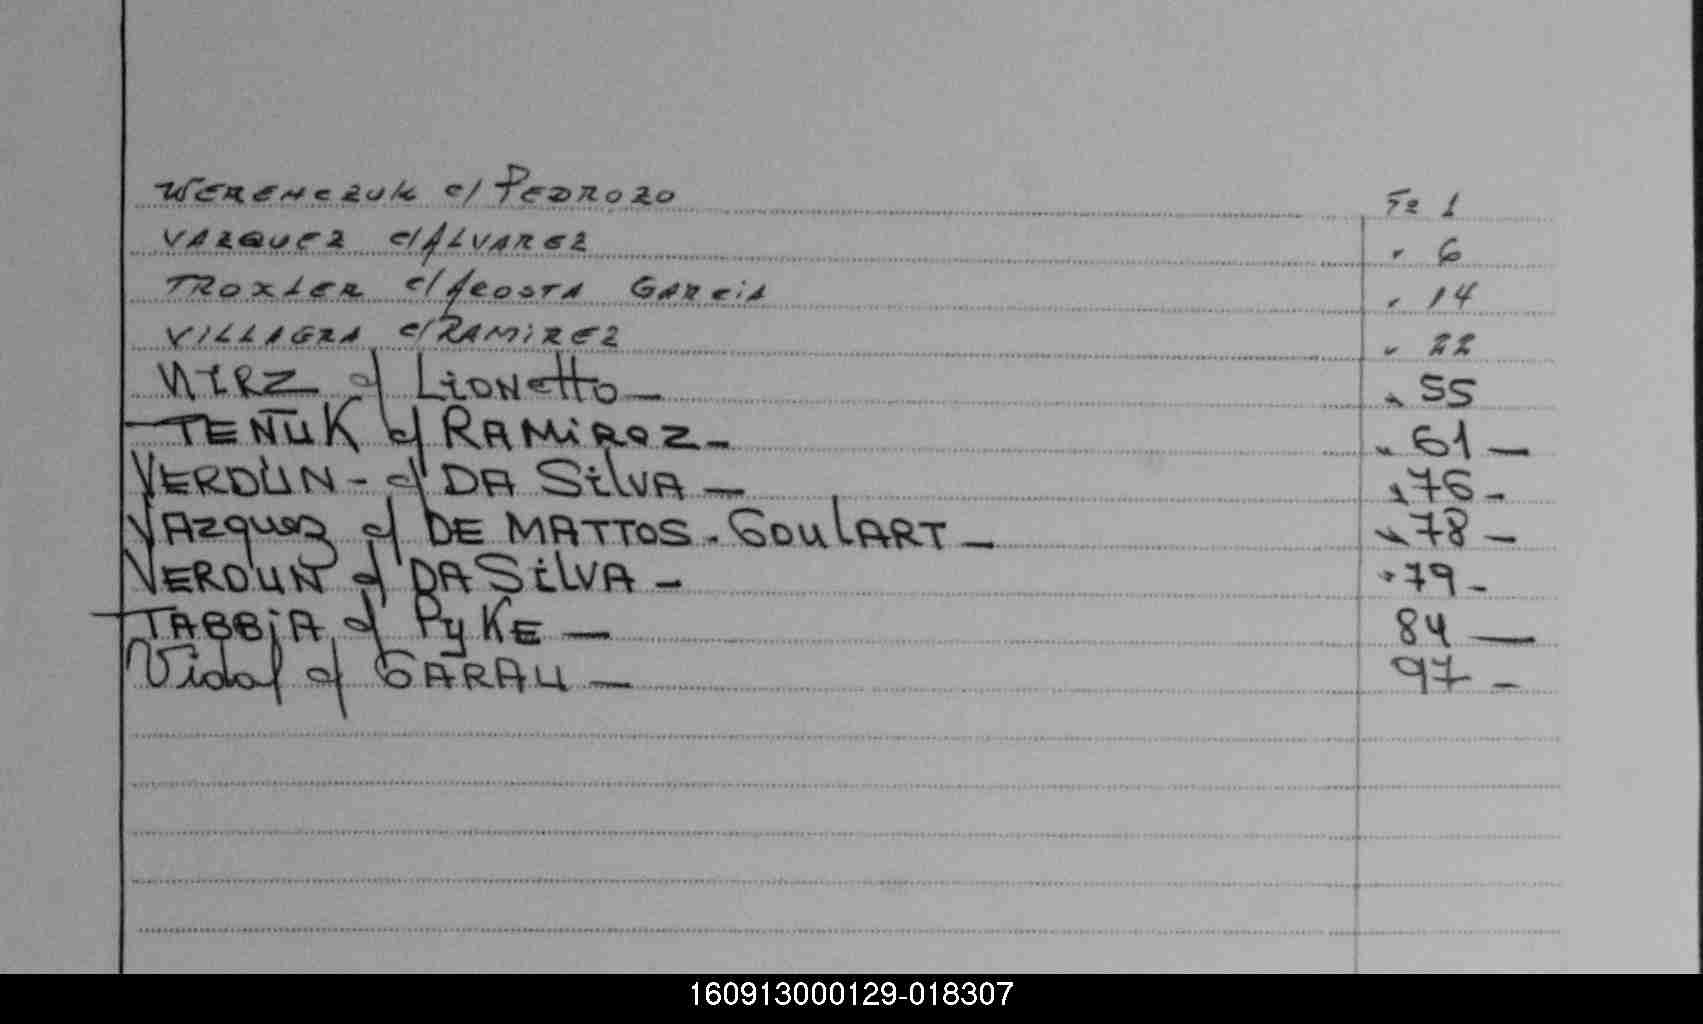 WERENCZUK c/ PEDROZO Fº 1
VAZQUEZ c/ ALVAREZ " 6
TROXLER c/ ACOSTA GARCIA " 14
VILLAGRA c/ RAMIREZ " 22
c/ LIONETTO — " 55
TEÑUK c/ RAMIREZ — " 61 —
VERDÚN - c/ DA SILVA — " 76 -
VAZQUEZ c/ DE MATTOS - GOULART — " 78 —
VERDÚN c/ DA SILVA — " 79 -
TABBIA c/ PYKE — 84 —
Vidal c/ GARAU — 97 -
160913000129-018307